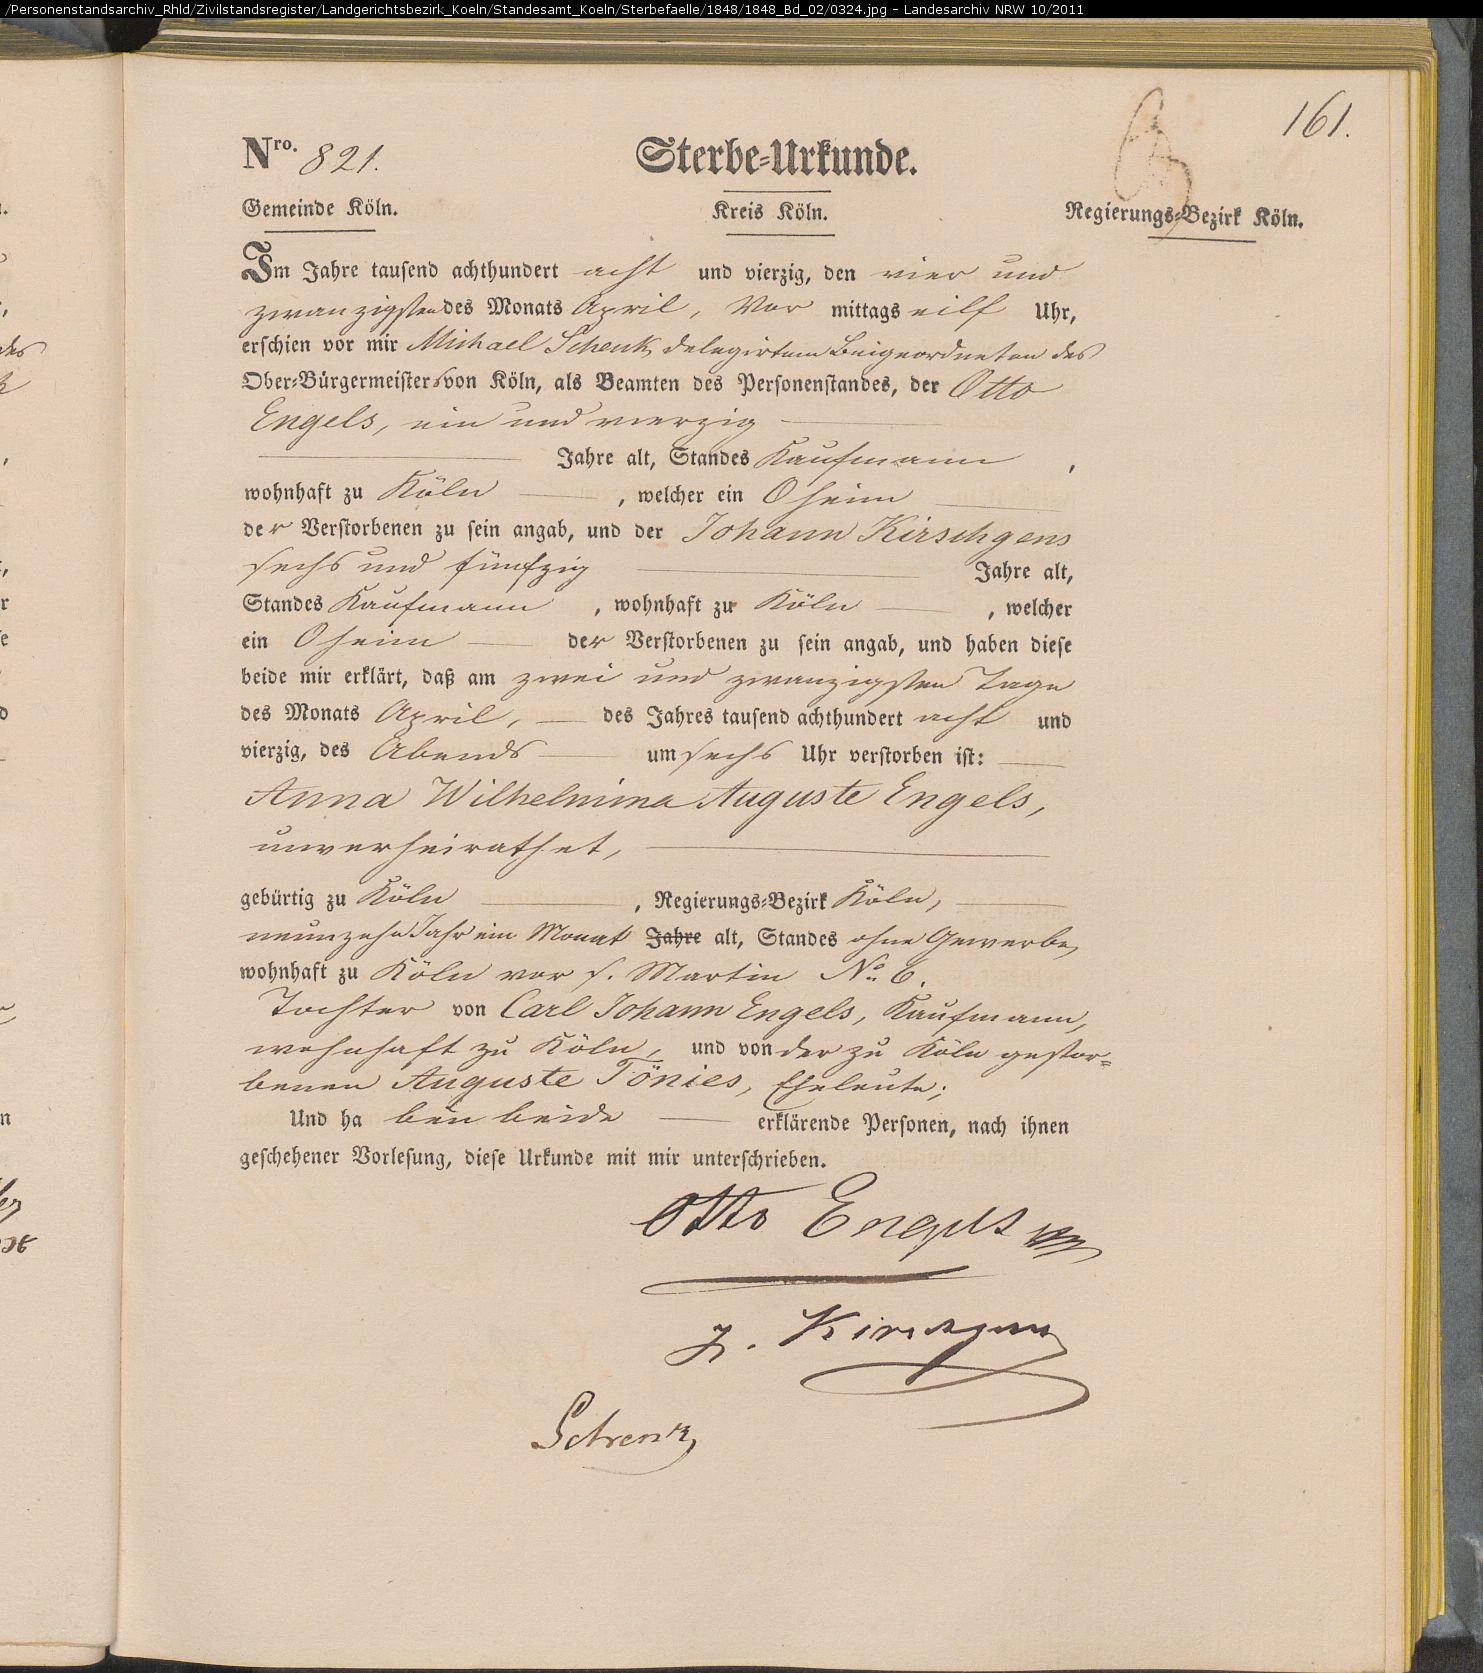 /Personenstandsarchiv_Rhld/Zivilstandsregister/Landgerichtsbezirk_Koeln/Standesamt_Koeln/Sterbefaelle/1848/1848_Bd_02/0324.jpg - Landesarchiv NRW 10/2011
161.
Nro. 821. Sterbe-Urkunde.
Gemeinde Köln. Kreis Köln. Regierungs-Bezirk Köln.
Im Jahre tausend achthundert acht und vierzig, den vier und
zwanzigsten des Monats April, Vor mittags eilf Uhr,
erschien vor mir Michael Schenk, delegirtem Beigeordneten des
Ober-Bürgermeisters von Köln, als Beamten des Personenstandes, der Otto
Engels, ein und vierzig
Jahre alt, Standes Kaufmann,
wohnhaft zu Köln, welcher ein Oheim
der Verstorbenen zu sein angab, und der Johann Kirschgens
sechs und fünfzig Jahre alt,
Standes Kaufmann, wohnhaft zu Köln, welcher
ein Oheim der Verstorbenen zu sein angab, und haben diese
beide mir erklärt, daß am zwei und zwanzigsten Tage
des Monats April, des Jahres tausend achthundert acht und
vierzig, des Abends um sechs Uhr verstorben ist:
Anna Wilhelmina Auguste Engels,
unverheirathet,
gebürtig zu Köln, Regierungs-Bezirk Köln,
neunzehn Jahr ein Monat Jahre alt, Standes ohne Gewerbe,
wohnhaft zu Köln vor s. Martin No 6.
Tochter von Carl Johann Engels, Kaufmann,
wohnhaft zu Köln, und von der zu Köln gestor-
benen Auguste Tönies, Eheleute;
Und ha ben beide erklärende Personen, nach ihnen
geschehener Vorlesung, diese Urkunde mit mir unterschrieben.
Otto Engels
J. Kirschgens
Schenk